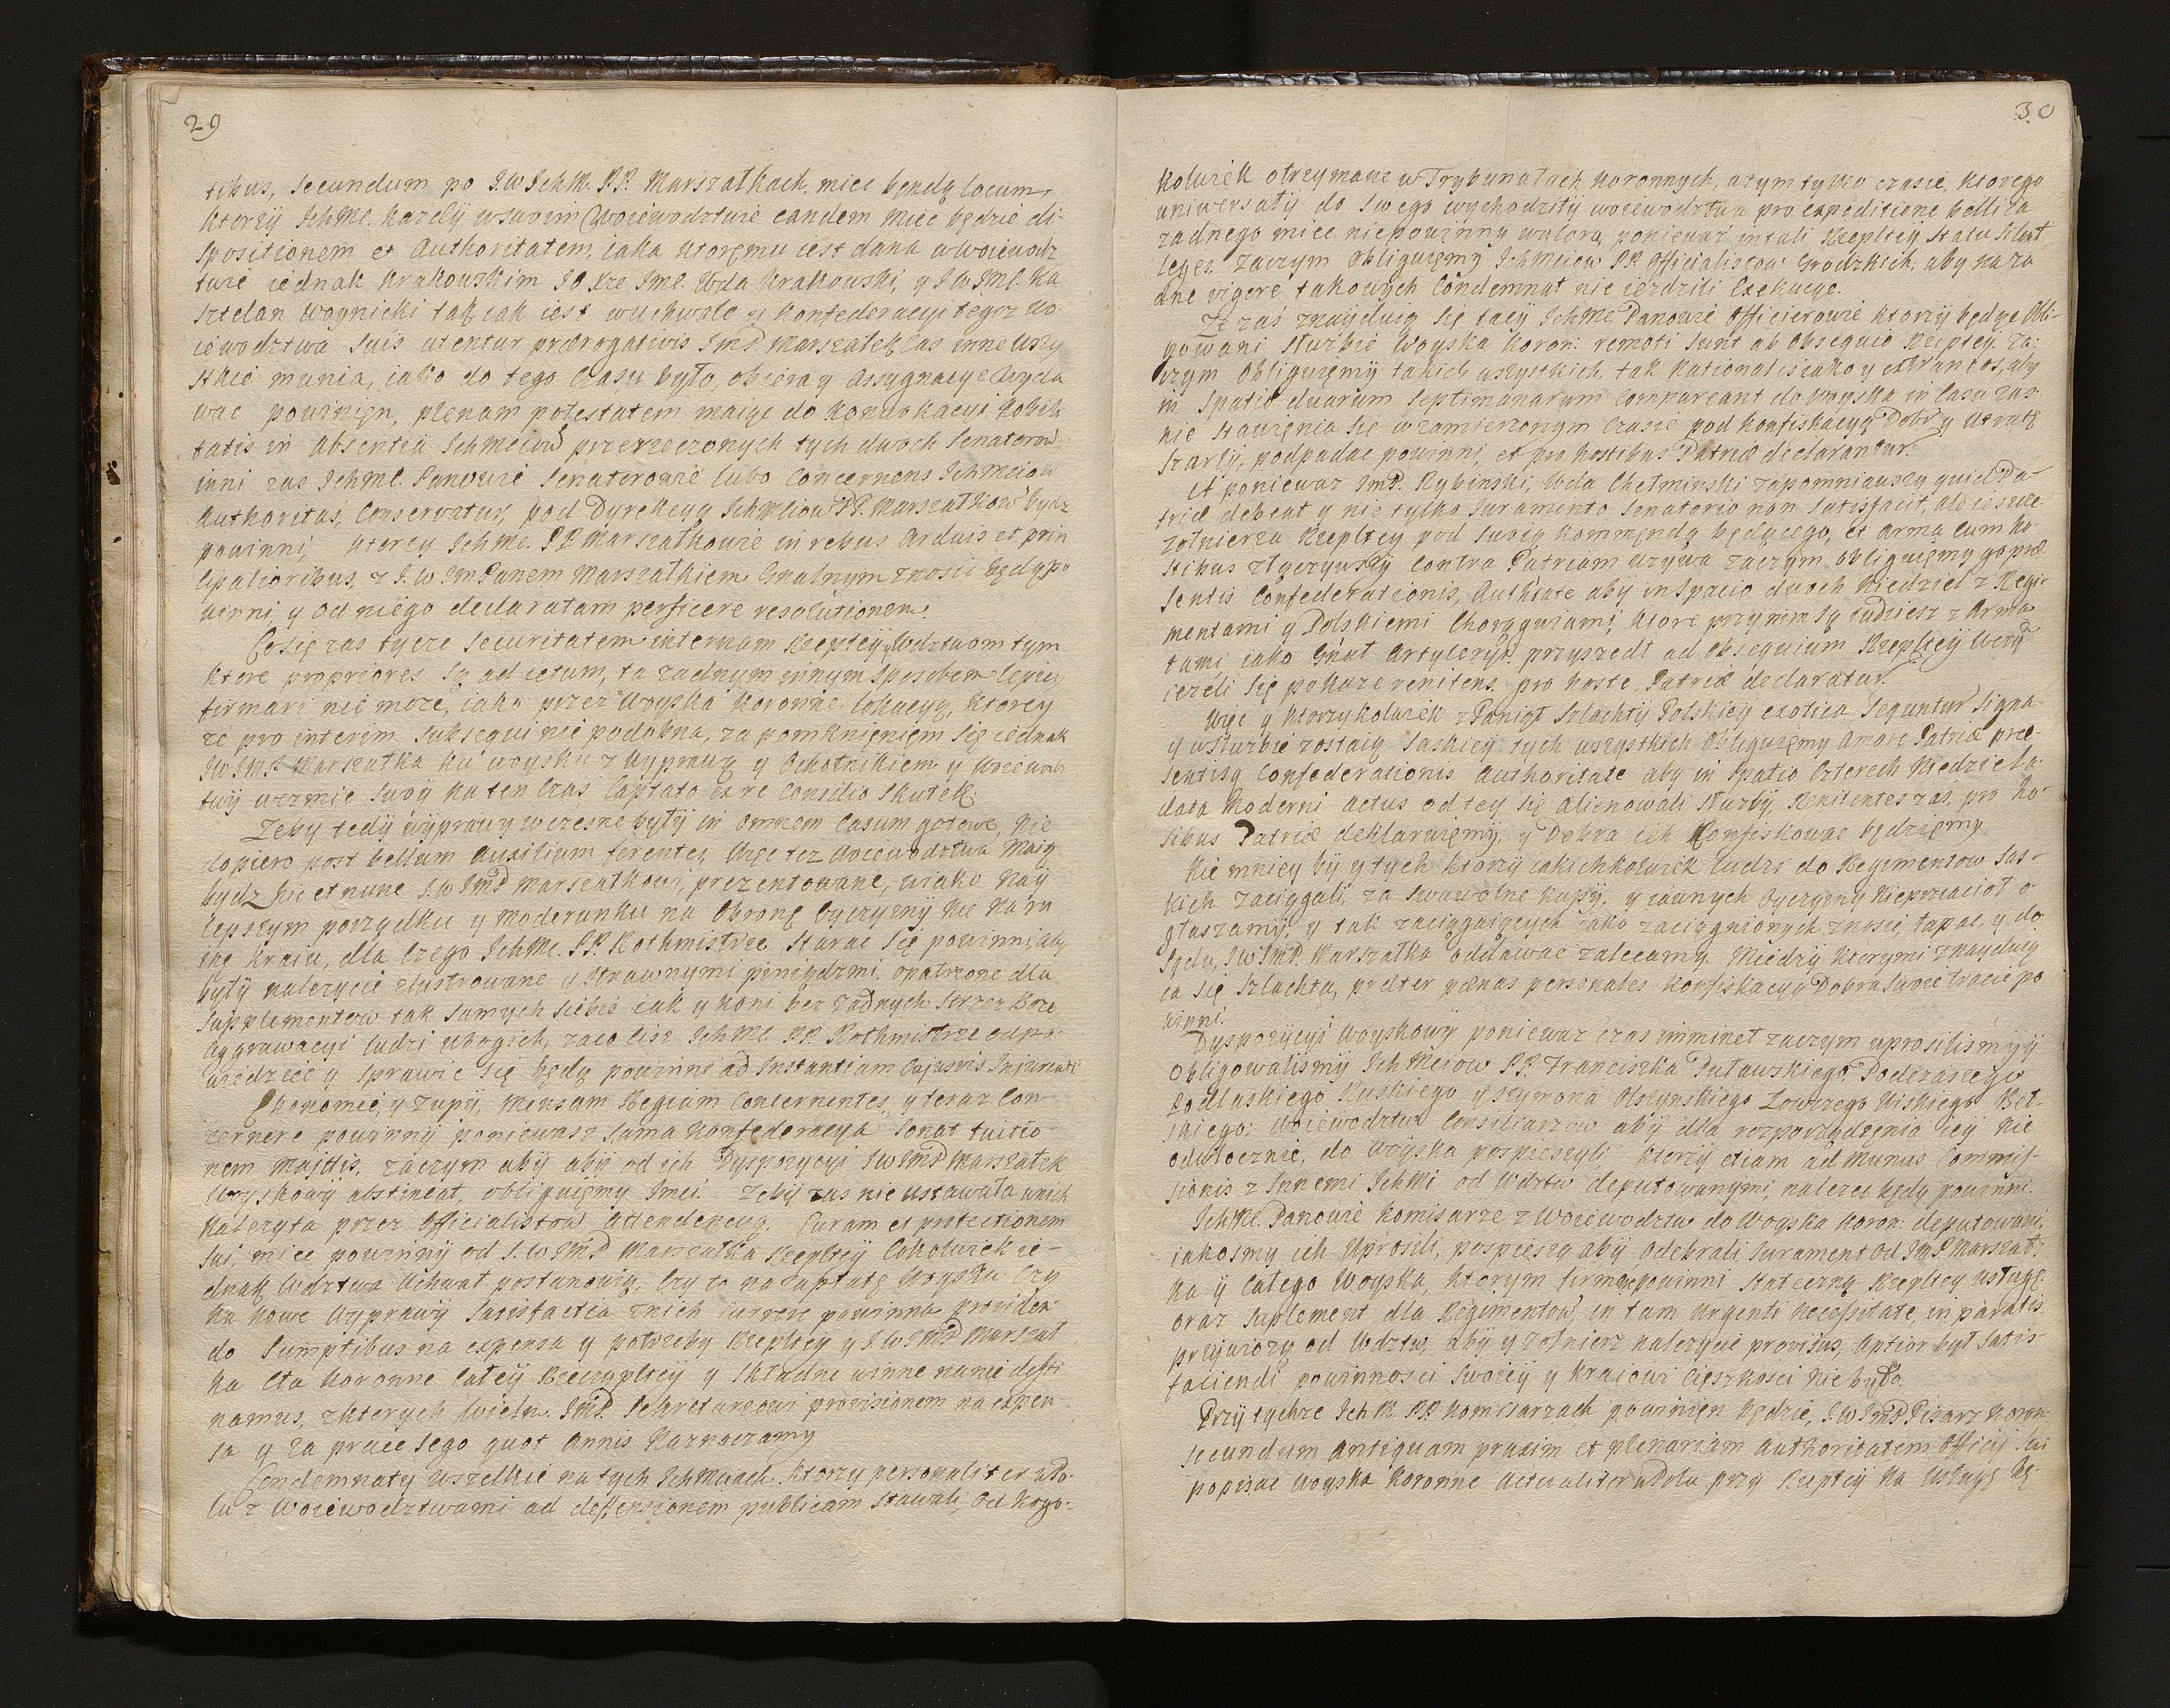 29
tibus, secundum po J.W JchM. P.P. Marszałkach, miec będą locum,
ktorzy Jchme. każdy wswoim Woiewodztwie eandem miec będzie di-
spositionem et Authoritatem, iaka ktoremu iest dana w Woiewodz
twie iednak Krakowskim JO Xże Jme. Wda Krakowski, y J W Jme. Ka
sztelan Woynicki tak iak iest wuchwale y Konfederacyi tegoz Wo
iewodztwa suis utentur prærogativis JmP. Marszałek zas inne wszy
stkie munia, iako do tego czasu było, obiera y Assygnacye wyda
wac powinien, plenam potestatem maiąc do Konwokacyi Nobili
tatis in absentia Jchmciow przerzeczonych tych dwoch Senatorow
inni zas Jchme. Panowie Senatorowie lubo concernens Jchmciow
Authoritas, conservatur, pod Dyrekcyą Jchmciow PP. Marszałkow bydz
powinni, ktorzy Jchme. PP Marszałkowie in rebus arduis et prin
cipalioribus, z J.W JmPanem Marszałkiem Gnalnym znosic będą po
winni, y od niego declaratam perficere resolutionem.
Co się zas tycze securitatem internam Rzepltey, Wdztwom tym
ktore propriores są ad ictum, ta zadnym innym sposobem lepiey
firmari nie moze, iako przez Woyska Koronne lokacyą, ktorey
ze pro interim subsequi nie podobna, za pomknięniem się iednak
JW JmP. Marszałka ku woysku z wyprawą y Ochotnikiem y Woiewodz
twy wezmie swoy na ten czas captato ex re consilio skutek.
Zeby tedy wyprawy wczesne były in omnem casum gotowe, nie
dopiero post bellum auxilium ferentes, więc tez Woiewodztwa maią
bydz hic et nunc J.W JmP Marszałkowi, prezentowane, w iako nay
lepszym porządku y moderunku na obronę oyczyzny nie na ru
inę kraiu, dla czego Jchme. P.P. Rothmistrze starac się powinni, aby
były nalezycie zlustrowane y strawnymi pieniędzmi opatrzone dla
supplementow tak samych siebie iak y koni bez żadnych strzez Boze
Aggrawacyi ludzi ubogich, za co cisz Jchme. P.P. Rothmistrze odpo-
wiedziec y sprawic się będą powinni ad Instantiam cujusvis Injuriati
Ekonomie, y Zupy, Mensam Regiam concernentes, y teraz con-
cernere powinny poniewasz sama Konfederacya sonat tuitio-
nem Majttis, zaczym aby aby od ich Dyspozycyi JW JmP Marszałek
Woyskowy abstineat, obliguięmy Jmci. Zeby zas nie ustawała w nich
nalezyta przez officialistow attendencya. Curam et protectionem
sui, miec powinny od J.W JmP Marszałka Rzepltey cokolwiek ie-
dnak Wdztwa uchwał postanowią, czy to na zapłatę Woysku czy
na nowe wyprawy satisfactia z nich currere powinna, providen
do sumptibus na expensa y potrzeby Rzepltey y J.W JmP Marszał
ka Cła Koronne całey Rzeczypltey y Składne winne nunc desti
namus, z ktorych Wieln. JmP. Sekretarzowi provisionem na expen
sa y za prace Jego quot annis naznaczamy
Condemnaty wszelkie na tych Jchmciach. Ktorzy personaliter w Po-
lu z Woiewodztwami ad deffensionem publicam stawali, od kogo-
30
kolwiek otrzymane w Trybunałach Koronnych, a tym tylko czasie, ktorego
uniwersały do swego wychodziły woiewodztwa pro expeditione bellica
zadnego miec niepowinny waloru, poniewaz in tali Rzepltey statu silent
leges. Zaczym obliguięmy Jchmciow P.P. officialistow Grodzkich, aby na za
dne vigere takowych Condemnat nie iezdzili Exekucye.
Ze zaś znayduią się tacy Jchme Panowie Officierowie ktorzy będąc obli-
gowani służbie Woyska Koron: remoti sunt ab obsequio Rzepltey. Za-
czym obliguięmy takich wszystkich, tak Nationalis iako y extraneos, aby
in spatio duarum septimanarum compareant do woyska in casu zas
nie stawięnia się w zamierzonym czasie pod konfiskacyą Dobr y utratę
szarzy, podpadac powinni, et pro hostibus Patriæ declarantur.
A poniewaz JmP. Rybinski, Wda Chełminski zapomniawszy quid Pa-
triæ debeat y nie tylko Juramento Senatorio non satisfacit, ale ieszcze
zołnierza Rzepltey pod swoią kommendą będącego, et arma cum ho-
stibus złączywszy contra Patriam uzywa zaczym obliguięmy go præ
sentis Confederationis, Authtate aby in spacio dwoch niedziel z Regi-
mentami y Polskiemi Chorągwiami, ktore przy nim są tudziesz z Arma
tami, iako Gnał Artyleryi. przyszedł ad obsequium Rzepltey wczy
iezeli się pokaze renitens. pro hoste Patriæ declaratur.
Więc y ktorzykolwiek z Paniąt szlachty Polskiey exotica sequntur signa
y w służbie zostaią Saskiey tych wszystkich obliguięmy amore Patriæ præ-
sentisq Confederationis Authoritate aby in spatio czterech Niedziel a
data moderni actus od tey się alienowali służby, Renitentes zas, pro ho-
stibus Patriæ deklaruięmy, y Dobra ich konfiskowac będzięmy
Nie mniey by y tych ktorzy iakichkolwiek ludzi do Regimentow Sas-
kich zaciągali, za swawolne kupy, y iawnych oyczyzny nieprzacioł o-
głaszamy, y tak zaciągaiących iako zaciągnionych znosic, łapac, y do
Sądu, JW JmP. Marszałka oddawac zalecamy. Miedzy ktorymi znayduią
ca się Szlachta, præter pænas personales konfiskacyą Dobra swoie tracic po
winni.
Dyspozycyi Woyskowy poniewaz czas imminet zaczym uprosilismy y
obligowalismy Jchmciow P.P. Franciszka Pułauskiego Podczaszego
Podlaskiego Ruskiego y Szymona Olszynskiego Łowczego Wiskiego Beł-
skiego: Woiewodztw Consiliarzow aby dla rozporządzęnia iey nie
odwłocznie, do Woyska pospieszyli ktorzy etiam ad munus commis-
sionis z Jnnemi Jchmi od Wdztw deputowanymi, nalezec będą powinni.
Jchme. Panowie Komisarze z Woiewodztw do Woyska Koron: deputowani,
iakosmy ich uprosili, pospieszą aby odebrali Jurament od JmP. Marszał-
ka y całego Woyska, ktorym firmare powinni stateczną Rzepltey usługę.
oraz suplement dla Regimentow, in tam urgenti necessitate, in paratis
przywiozą od Wdztw, aby y zołnierz nalezycie provisus, aptior był satis-
faciendi powinnosci swoiey y kraiowi cięszkosci nie było.
Przy tychze Jchm. P.P. Komisarzach powinien będzie, J.W JmP Pisarz Koron
secundum antiquam praxim et plenariam authoritatem officij sui
popisac Woyska Koronne actualiter w Polu przy Rzepltey na usłuyę bę-